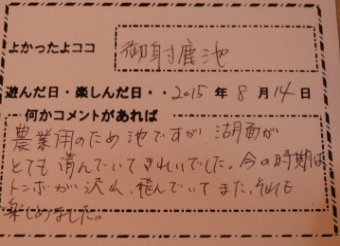 よかったよココ 御射鹿池
遊んだ日・楽しんだ日・・2015年8月14日
何かコメントがあれば
農業用のため池ですが、湖面が
とても清んでいてきれいでした。今の時期は
トンボが沢山飛んでいてまた、
楽しめました。